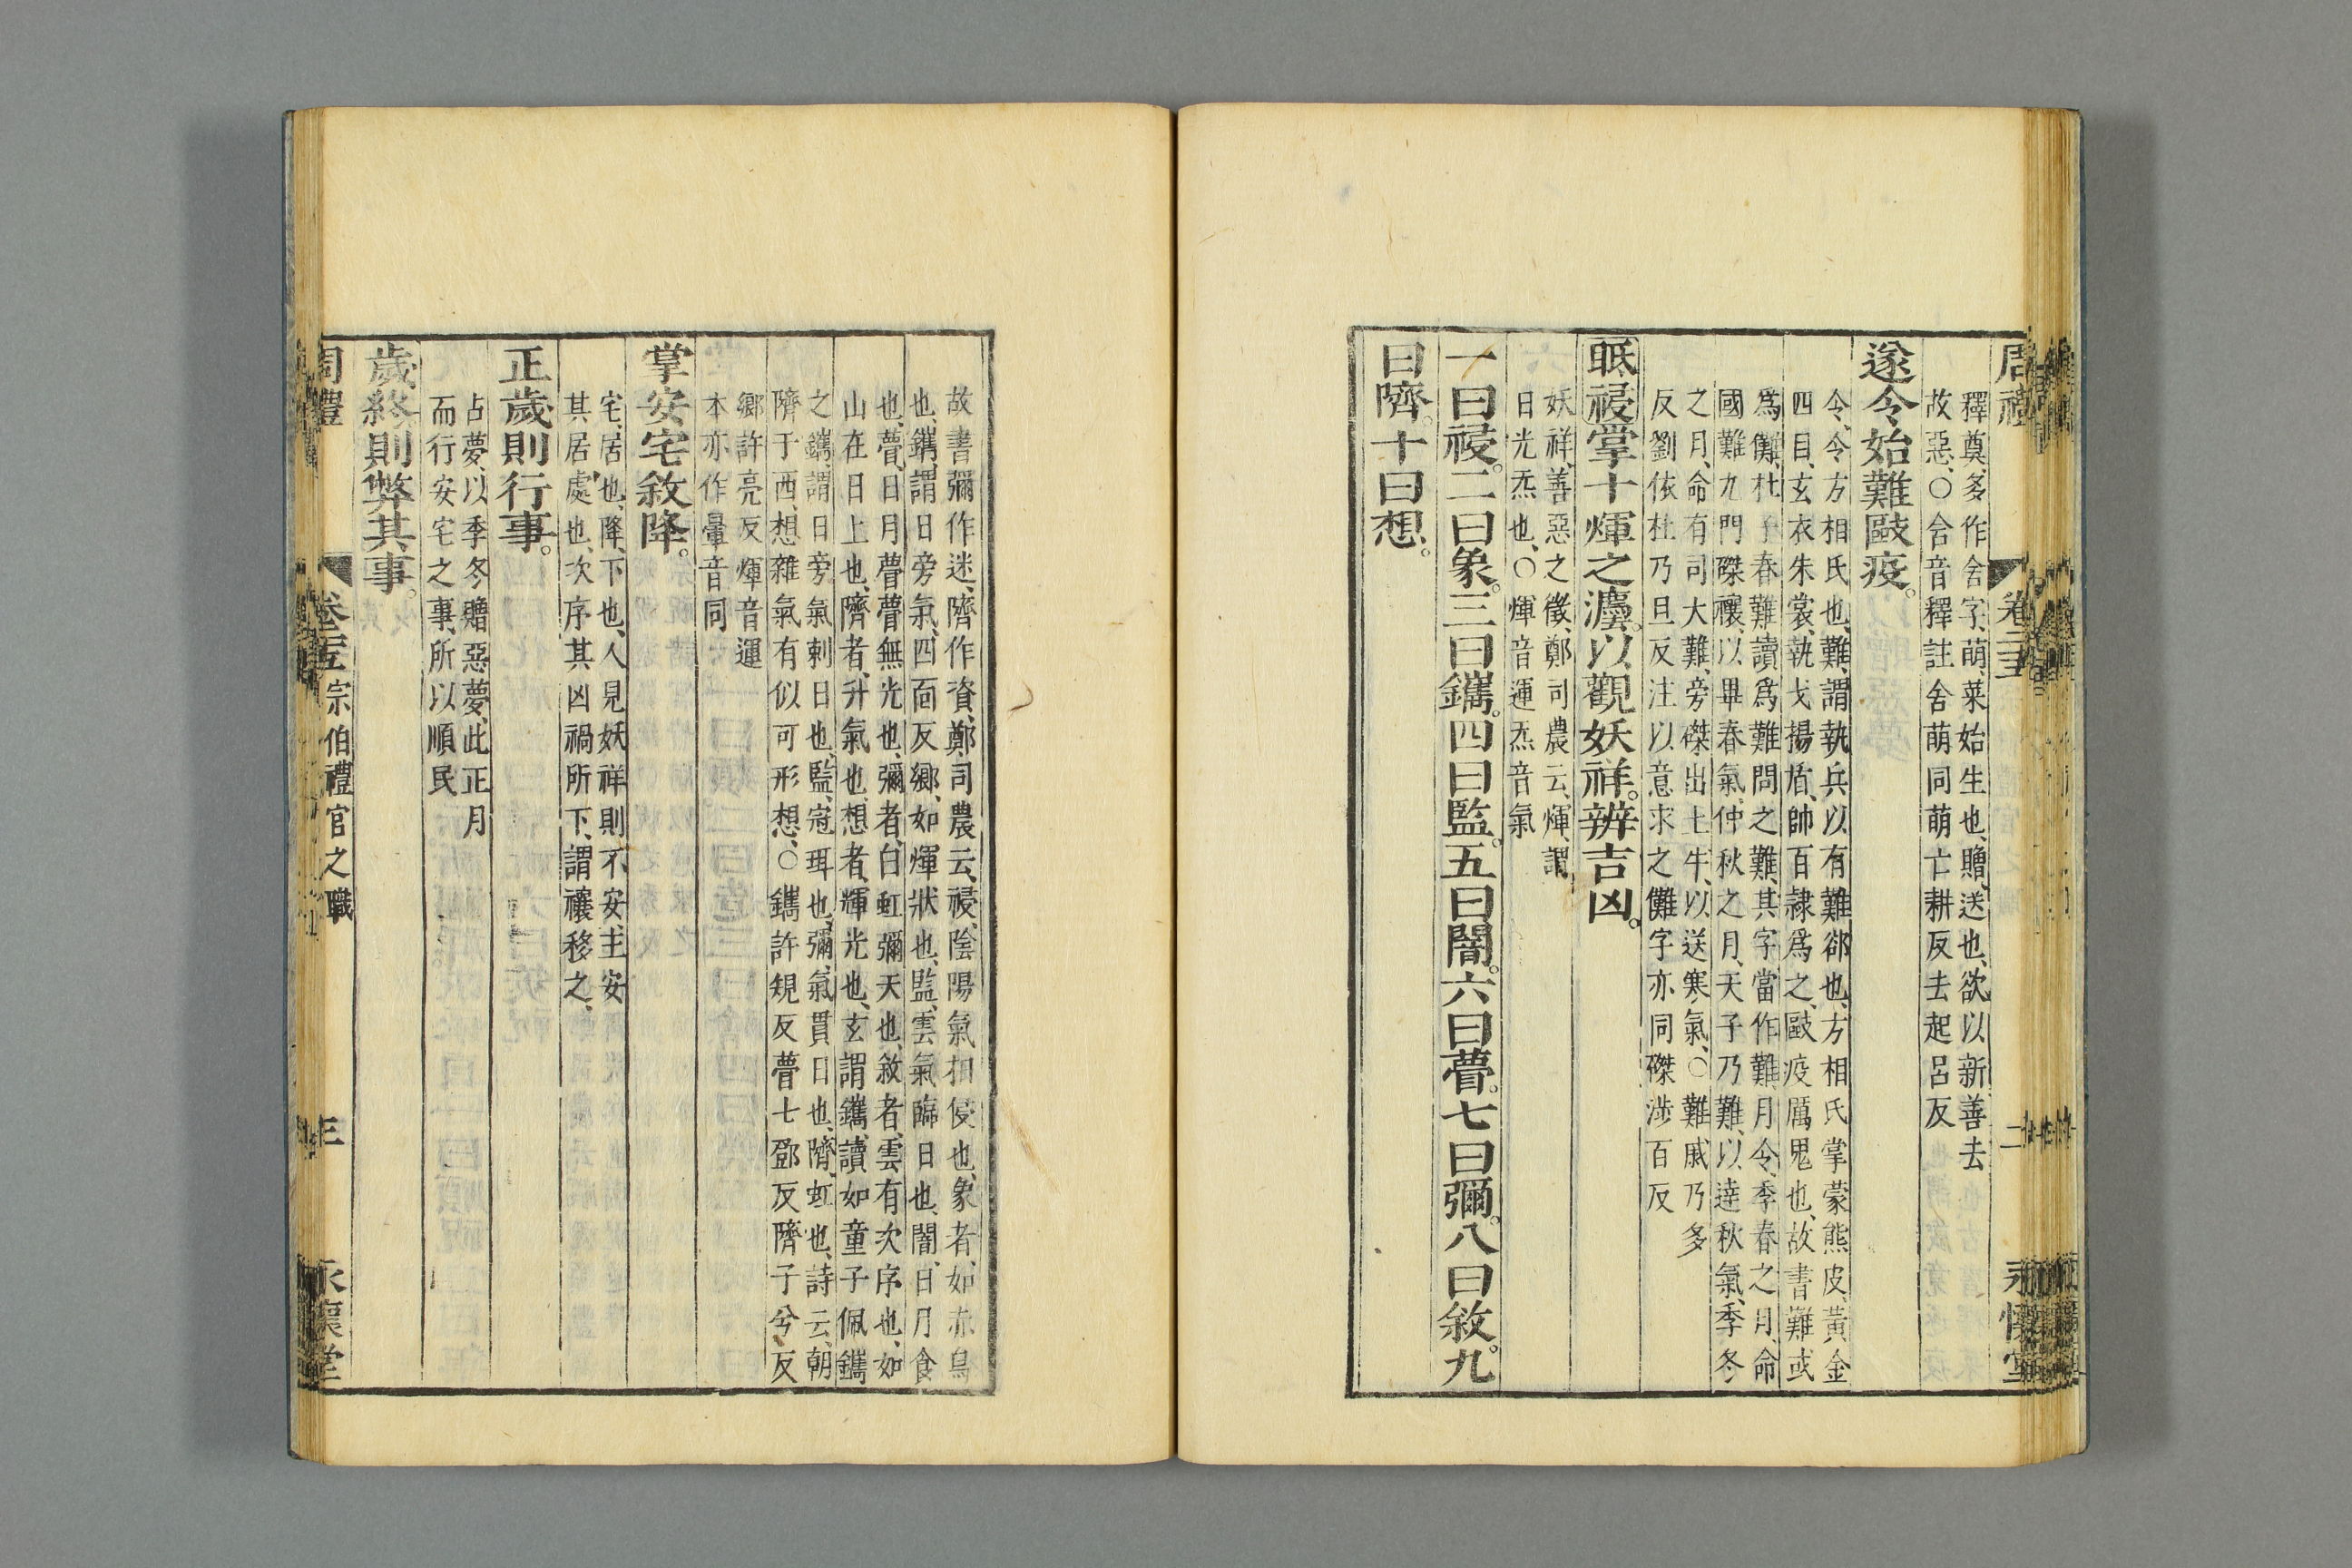 周禮 卷二十五 二 永懷堂
釋奠多作舍字、萌、菜始生也、贈、送也、欲以新善去
故惡、○舍音釋註舍萌同萌亡耕反去起呂反
遂令始難敺疫。
令、令方相氏也、難、謂執兵以有難郤也、方相氏掌蒙熊皮、黃金
四目、玄衣朱裳、執戈揚盾、帥百隸爲之、敺疫厲鬼也、故書難或
爲儺、杜子春難讀爲難問之難、其字當作難、月令、季春之月、命
國難九門磔禳、以畢春氣、仲秋之月、天子乃難、以達秋氣、季冬
之月、命有司大難、旁磔出土牛、以送寒氣、○難戚乃多
反劉依杜乃旦反注以意求之儺字亦同磔涉百反
眡祲掌十煇之灋。以觀妖祥。辨吉凶。
妖祥、善惡之徵、鄭司農云、煇、謂
日光炁也、○煇音運炁音氣
一曰祲。二曰象。三曰鑴。四曰監。五曰闇。六曰瞢。七曰彌。八曰敘。九
曰隮。十曰想。
故書彌作迷、隮作資、鄭司農云、祲、陰陽氣相侵也、象者、如赤烏
也、鑴、謂日旁氣、四面反鄉、如煇狀也、監、雲氣臨日也、闇、日月食
也、瞢、日月瞢瞢無光也、彌者、白虹彌天也、敘者、雲有次序也、如
山在日上也、隮者、升氣也、想者、輝光也、玄謂鑴、讀如童子佩鑴
之鑴、謂日旁氣刺日也、監、冠珥也、彌、氣貫日也、隮、虹也、詩云、朝
隮于西、想、雜氣有似可形想、○鑴許規反瞢七鄧反隮子兮、反
鄉許亮反煇音運
本亦作暈音同
掌安宅敘降。
宅、居也、降、下也、人見妖祥則不安、主安
其居處也、次序其凶禍所下、謂禳移之、
正歲則行事。
占夢、以季冬贈惡夢、此正月
而行安宅之事、所以順民
歲終則弊其事。
周禮 卷二十五 宗伯禮官之職 三 永懷堂